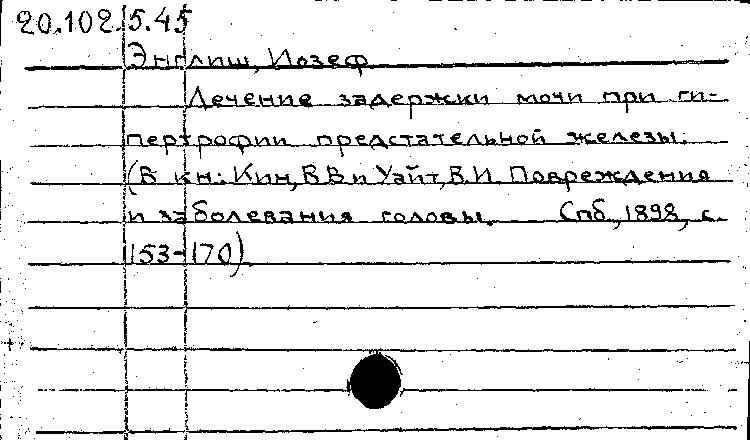 20.102.5.45
Энглиш, Иозеф
Лечение задержки мочи при ги-
пертрофии предстательной железы.
(В кн: Кин, В.В. и Уайт, В.И. Повреждения
и заболевания головы. Спб, 1898, с.
153-170)